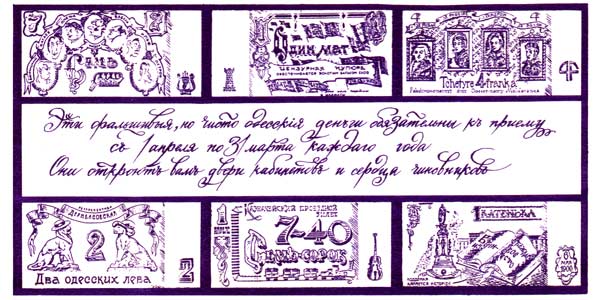 7 7
Гамъ
Один матъ
ЦЕНЗУРНАЯ КУПЮРА
4 4
Tchetyre 4 franka
Эти фальшивыя, но чисто одесскiя деньги обязательны къ приему
съ 1 апреля по 31 марта каждаго года
Они откроютъ вамъ двери кабинетовъ и сердца чиновниковъ
ДЕРИБАСОВСКАЯ
2
Два одесских лева
2
1
КАЗНАЧЕЙСКИЙ ПРОЕЗДНОЙ БИЛЕТ
7-40
Семь-сорок
КАТЕНЬКА
6
МАЯ
1900